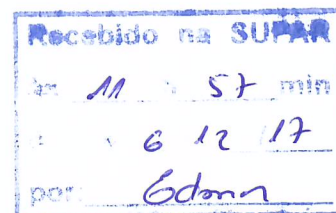 Recebido na SUPAR
às 11 : 57 min
6 12 17
por: